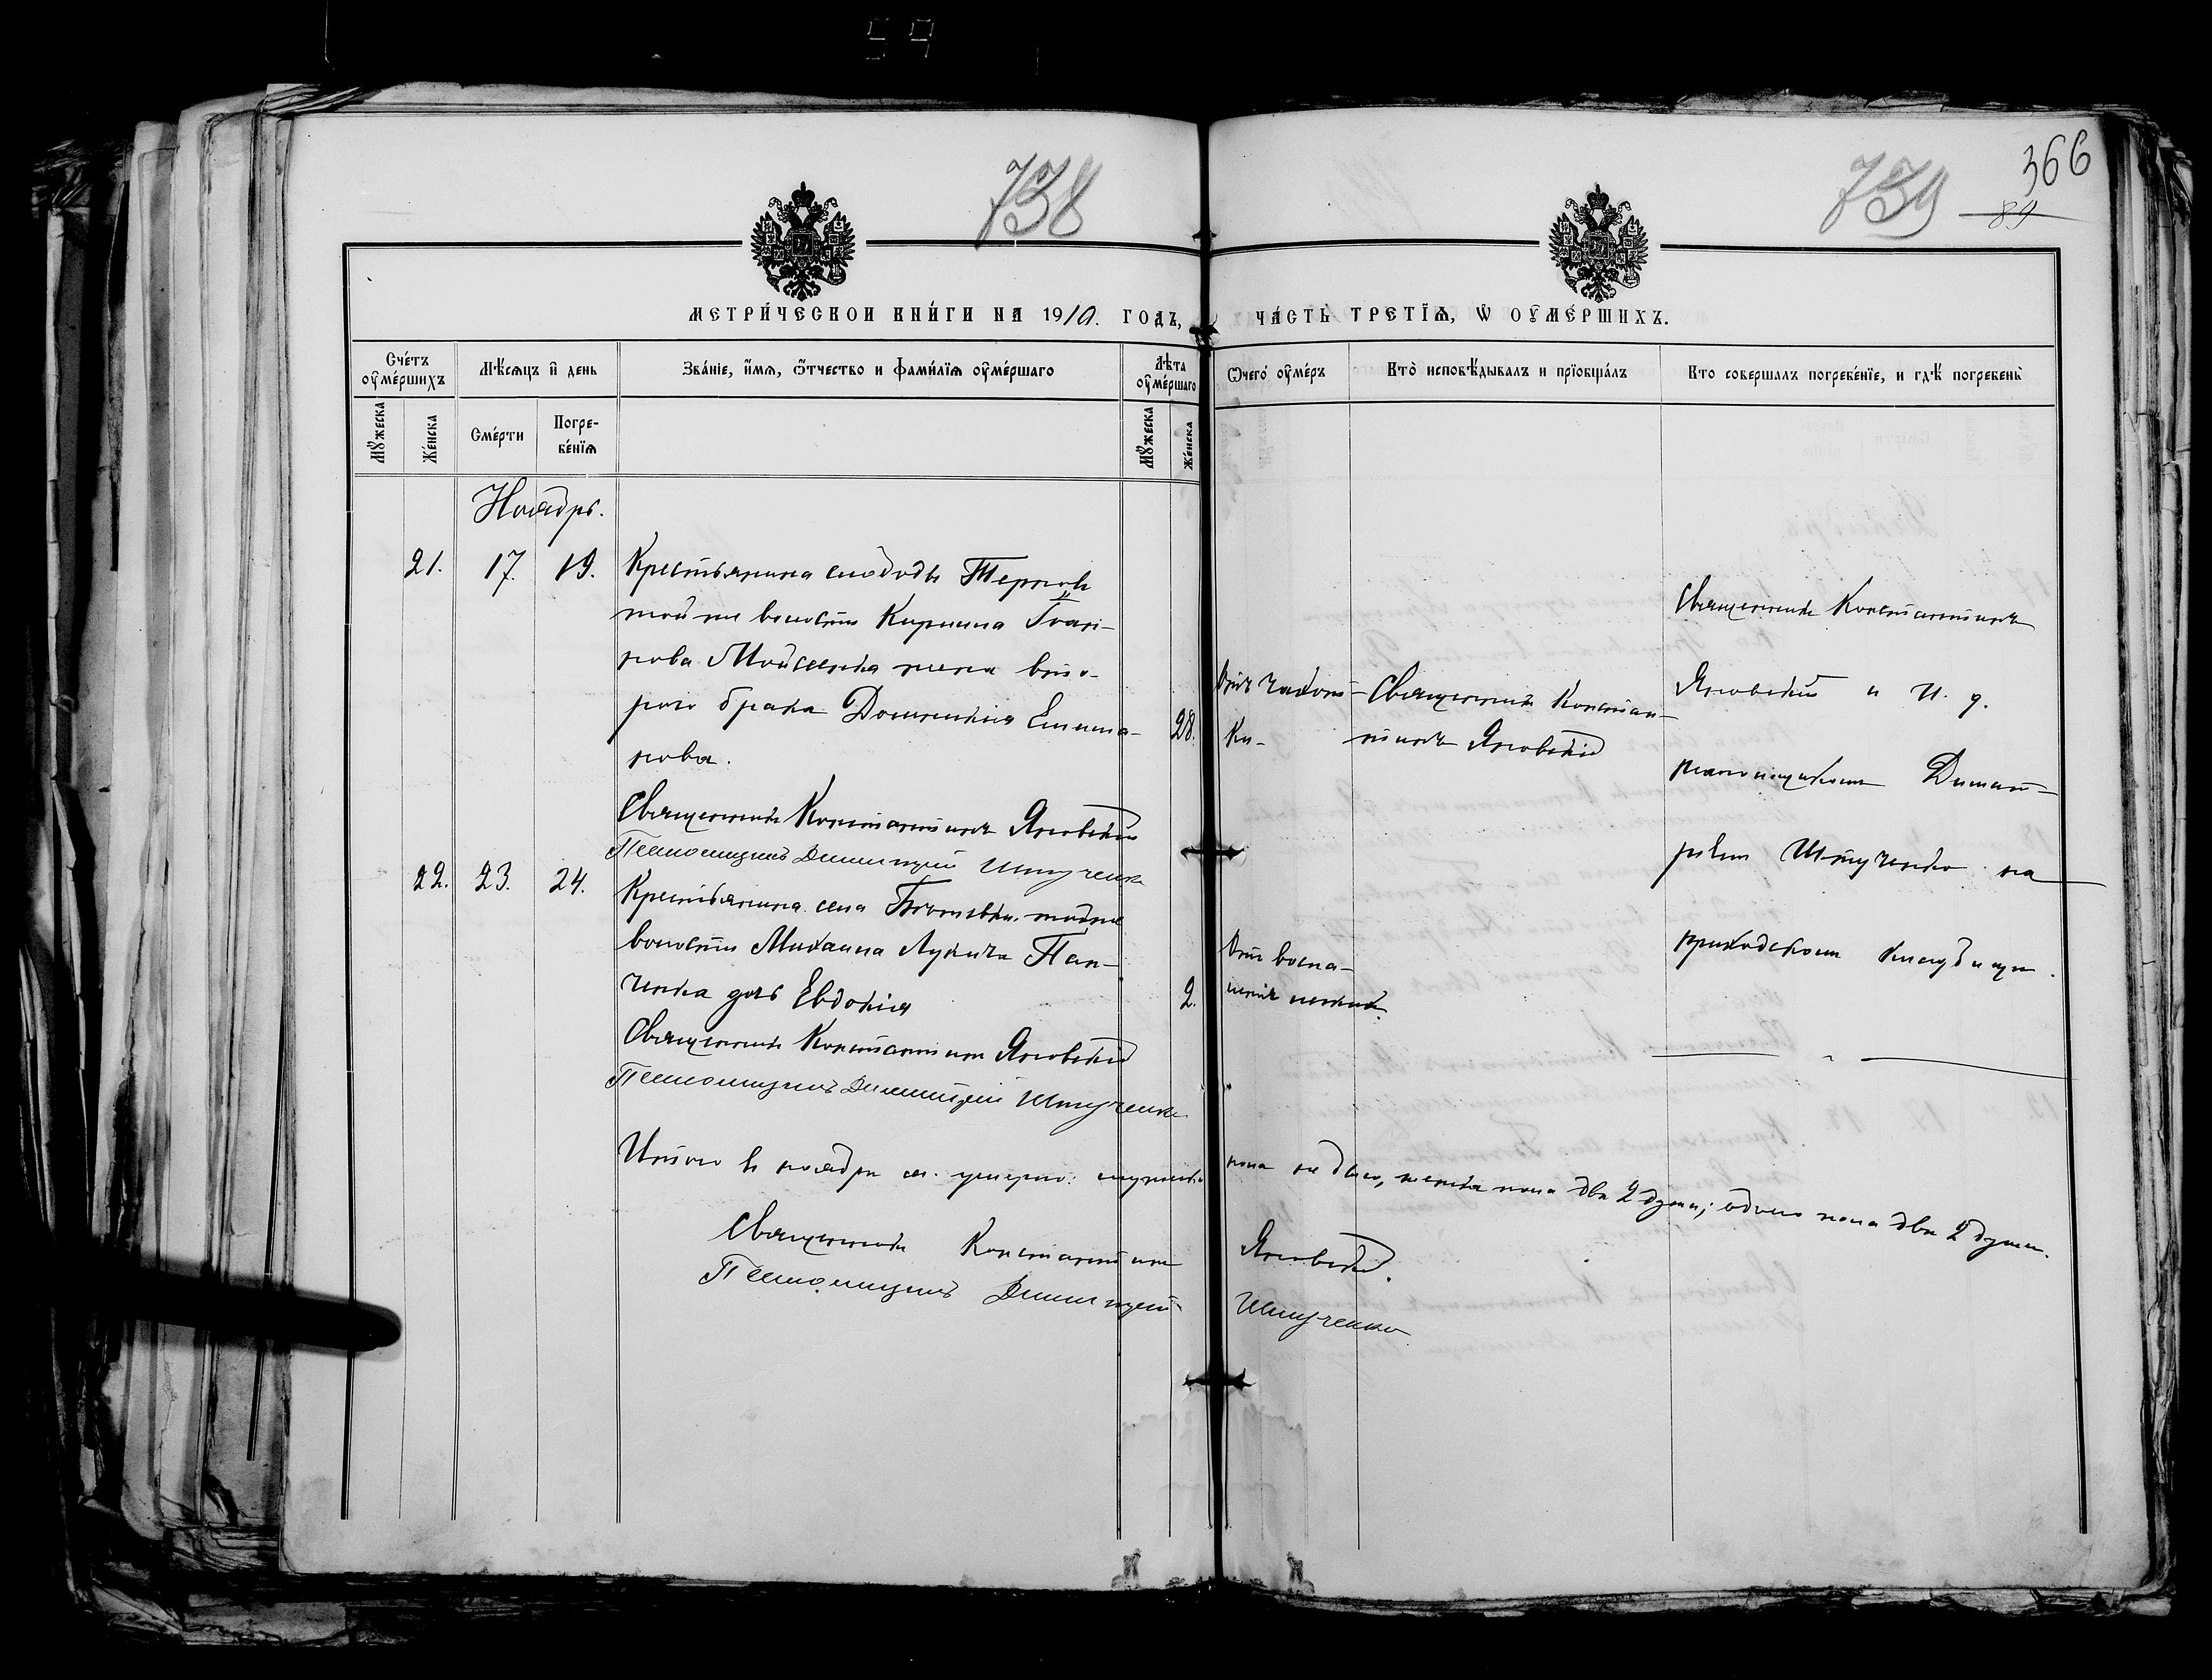 59
738
739
366
89
МЕТРИЧЕСКОЙ КНИГИ НА 1910. ГОДЪ,
ЧАСТЬ ТРЕТІѦ, Ѡ ОУМЕРШИХЪ.
Счетъ оумершихъ
Мѣсѧцъ и день
Званіе, имѧ, ѿчество и фамиліѧ оумершаго
Лѣта оумершаго
Ѿчего оумеръ
Кто исповѣдывалъ и пріобщалъ
Кто совершалъ погребеніе, и гдѣ погребены
Мужеска
Женска
Смерти
Погребеніѧ
Мужеска
Женска
Ноябрь.
21. 17. 19. Крестьянина слободы Терновъ
той же волости Кирилла
рова Мойсеенка жена вто-
рого брака Домникія
рова. 28.
Отъ чахот-
ки-
Священникъ Констан-
тинъ Яновскій
Священникъ Константинъ
Яновскій и и. д.
псаломщикомъ Димит-
ріемъ Штученко на
приходскомъ кладбищѣ.
Священникъ Константинъ Яновскій
Псаломщикъ Димитрій Штученко
22. 23. 24. Крестьянина села тойже
волости Михаила Лукича Пан-
ченка дочь Евдокія 2.
Отъ воспа-
ленія легкихъ.
Священникъ Константинъ Яновскій
Псаломщикъ Димитрій Штученко
Итого въ ноябрѣ м. умерло: мужеска пола не было, женска пола двѣ 2 души; обоего пола двѣ 2 души.
Священникъ Константинъ Яновскій.
Псаломщикъ Димитрій Штученко